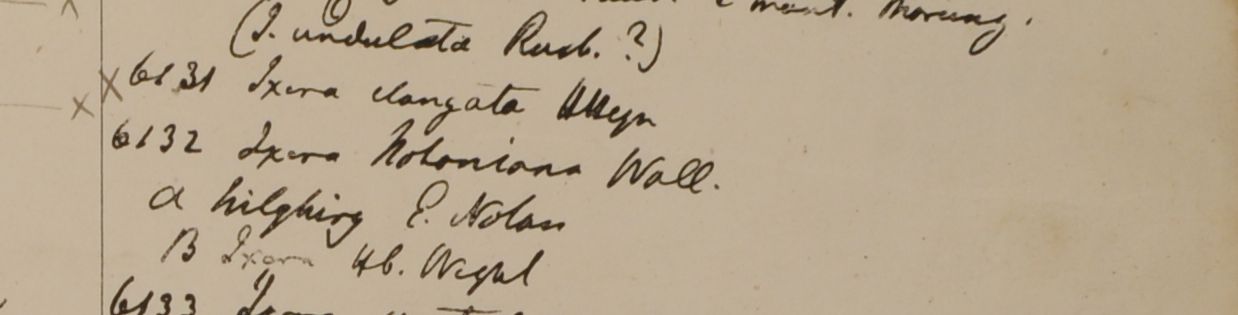 mont. Morung.
(I. undulata Roxb.?)
6131 Ixora elongata HHeyn
6132 Ixora Notoniana Wall.
a Nilghiry E. Noton
B Ixora Hb. Wight
6133 Ixora